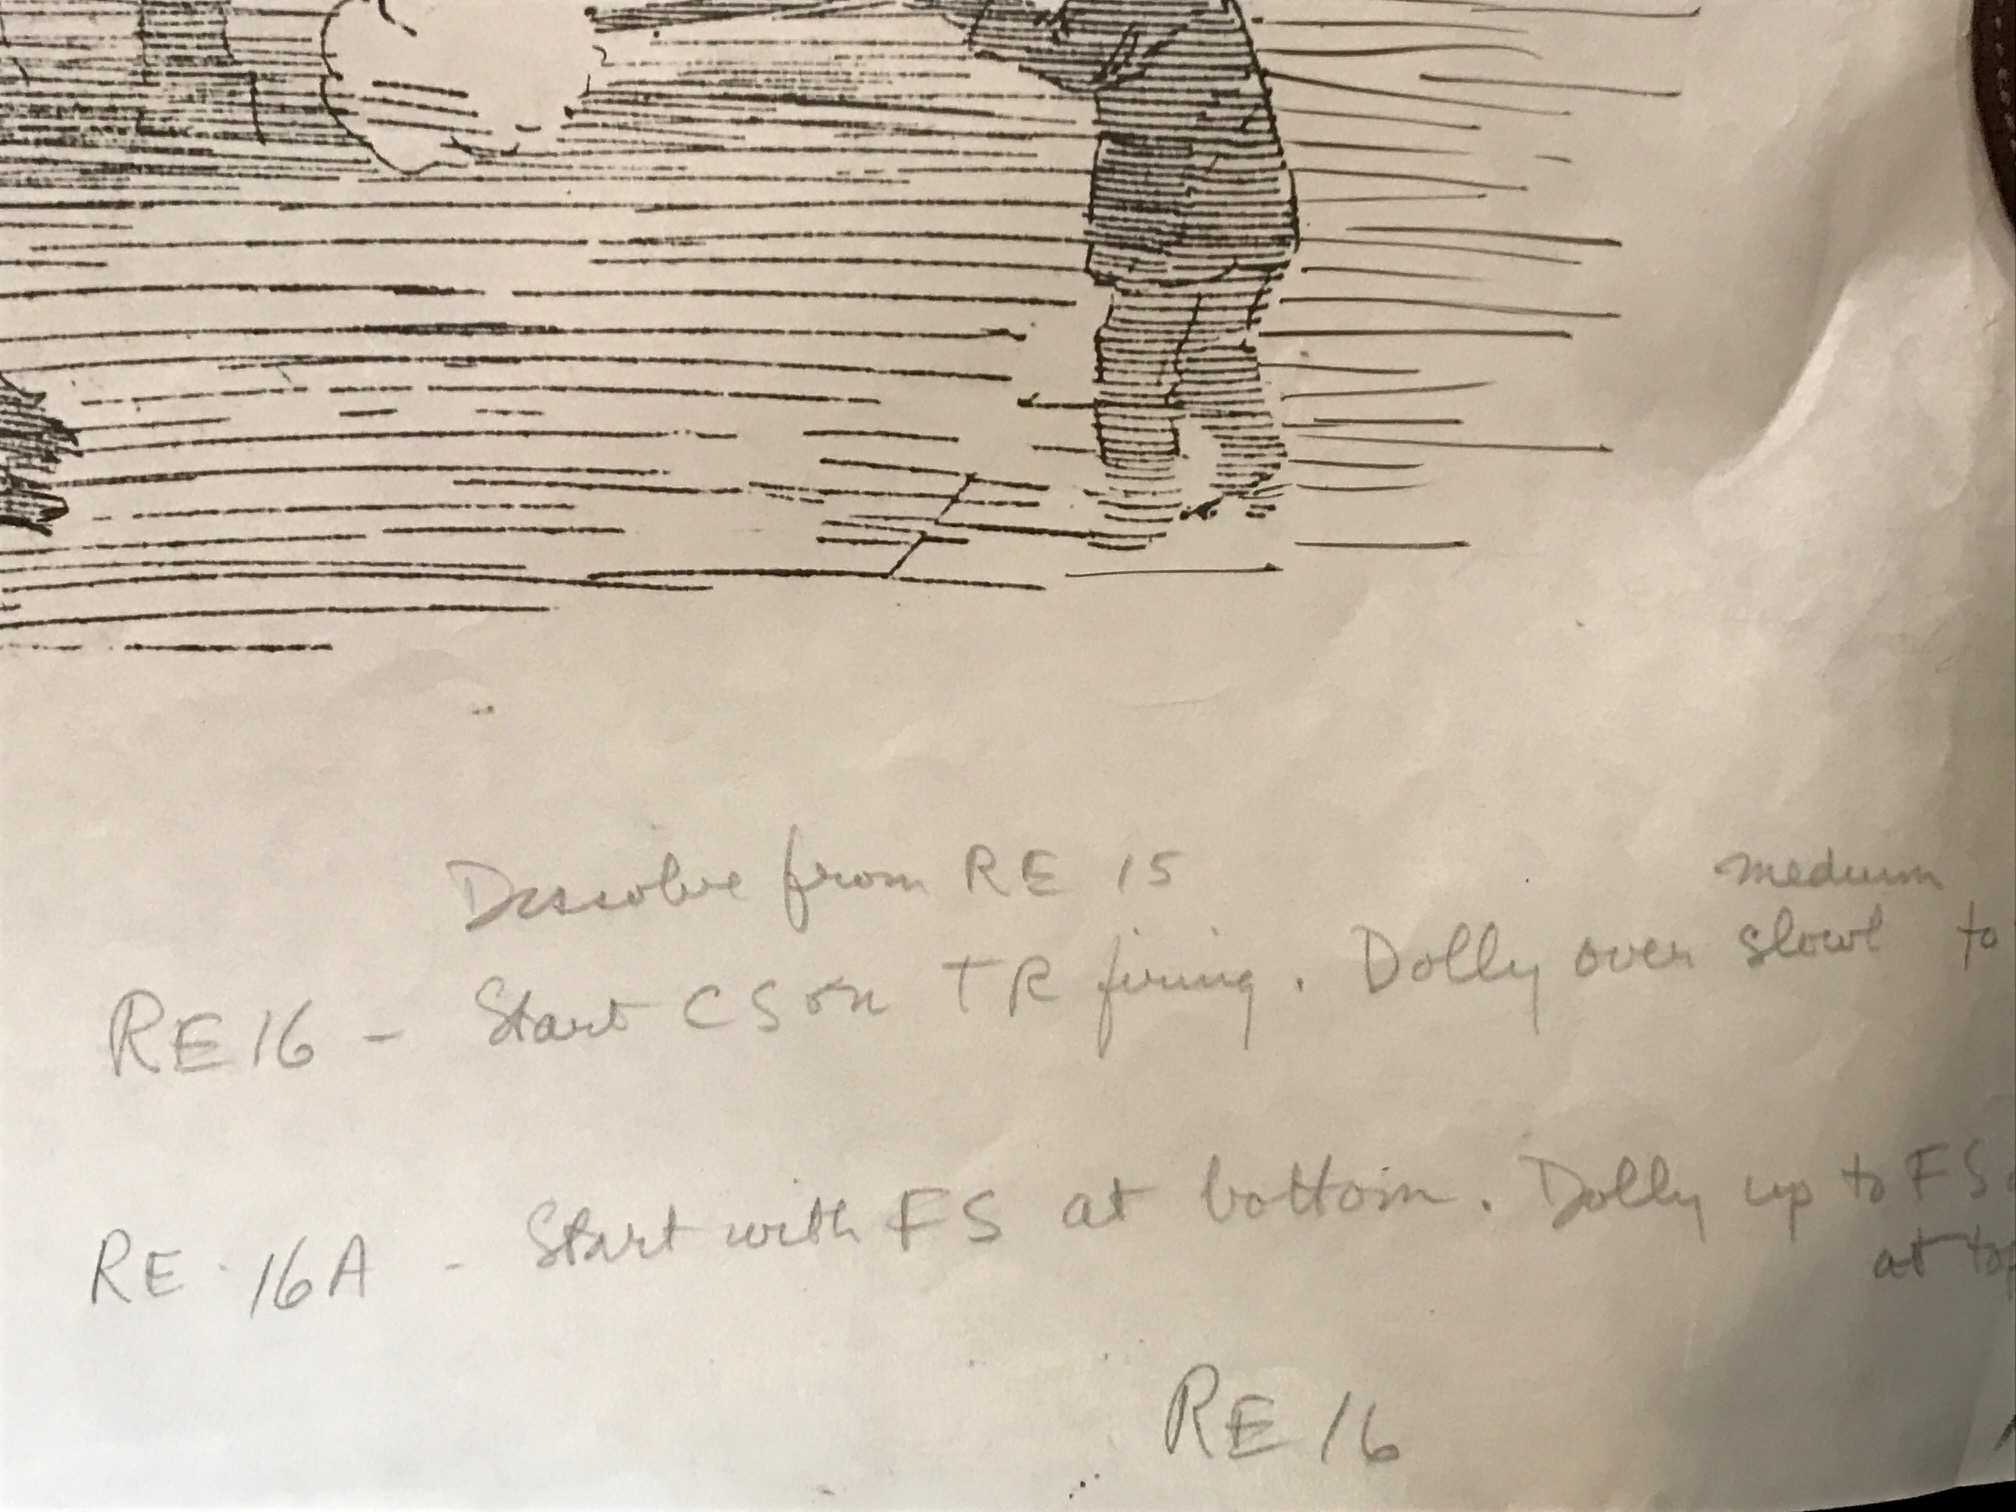 Dissolve from RE 15
medium
RE 16 - Start CS on TR firing. Dolly over slowl to
RE 16A - Start with FS at bottom. Dolly up to FS
at top
RE 16